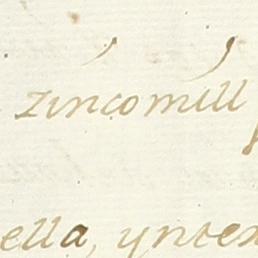 zincomill
ella, yntex